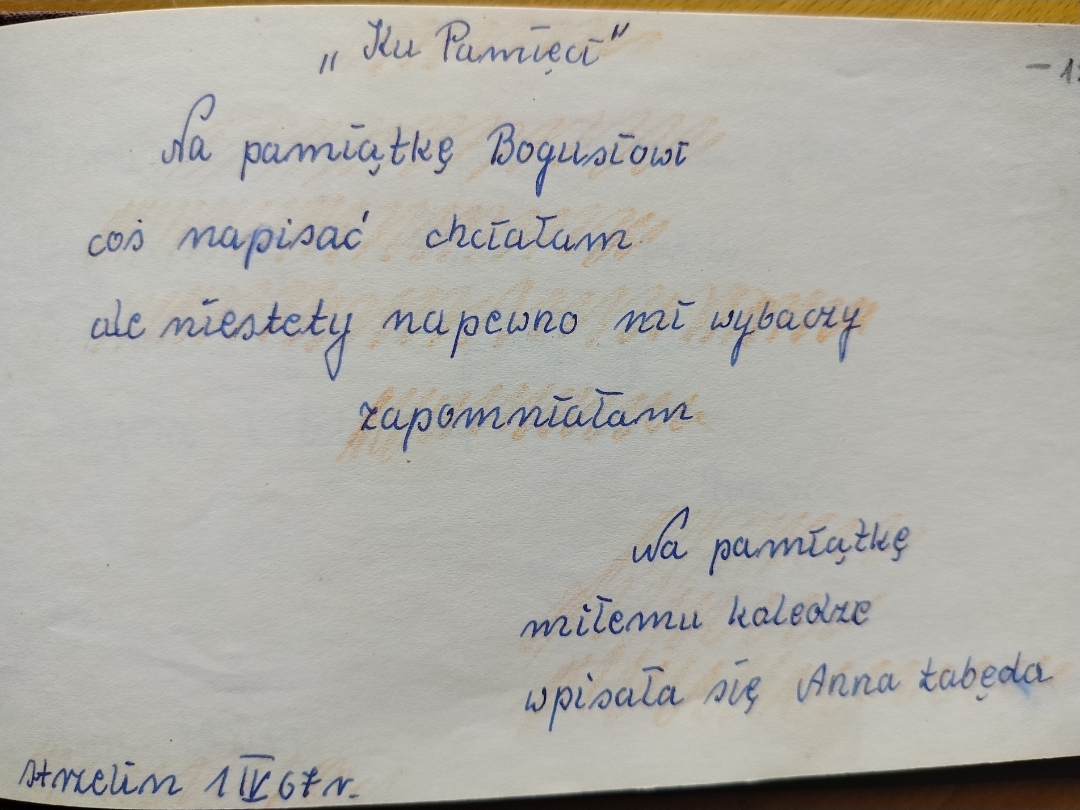 „Ku Pamięci"
— 1
Na pamiątkę Bogusłowi
coś napisać chciałam
ale niestety napewno mi wybaczy
zapomniałam
Na pamiątkę
miłemu koledze
wpisała się Anna Łabęda
Strzelin 1 IV 67 r.